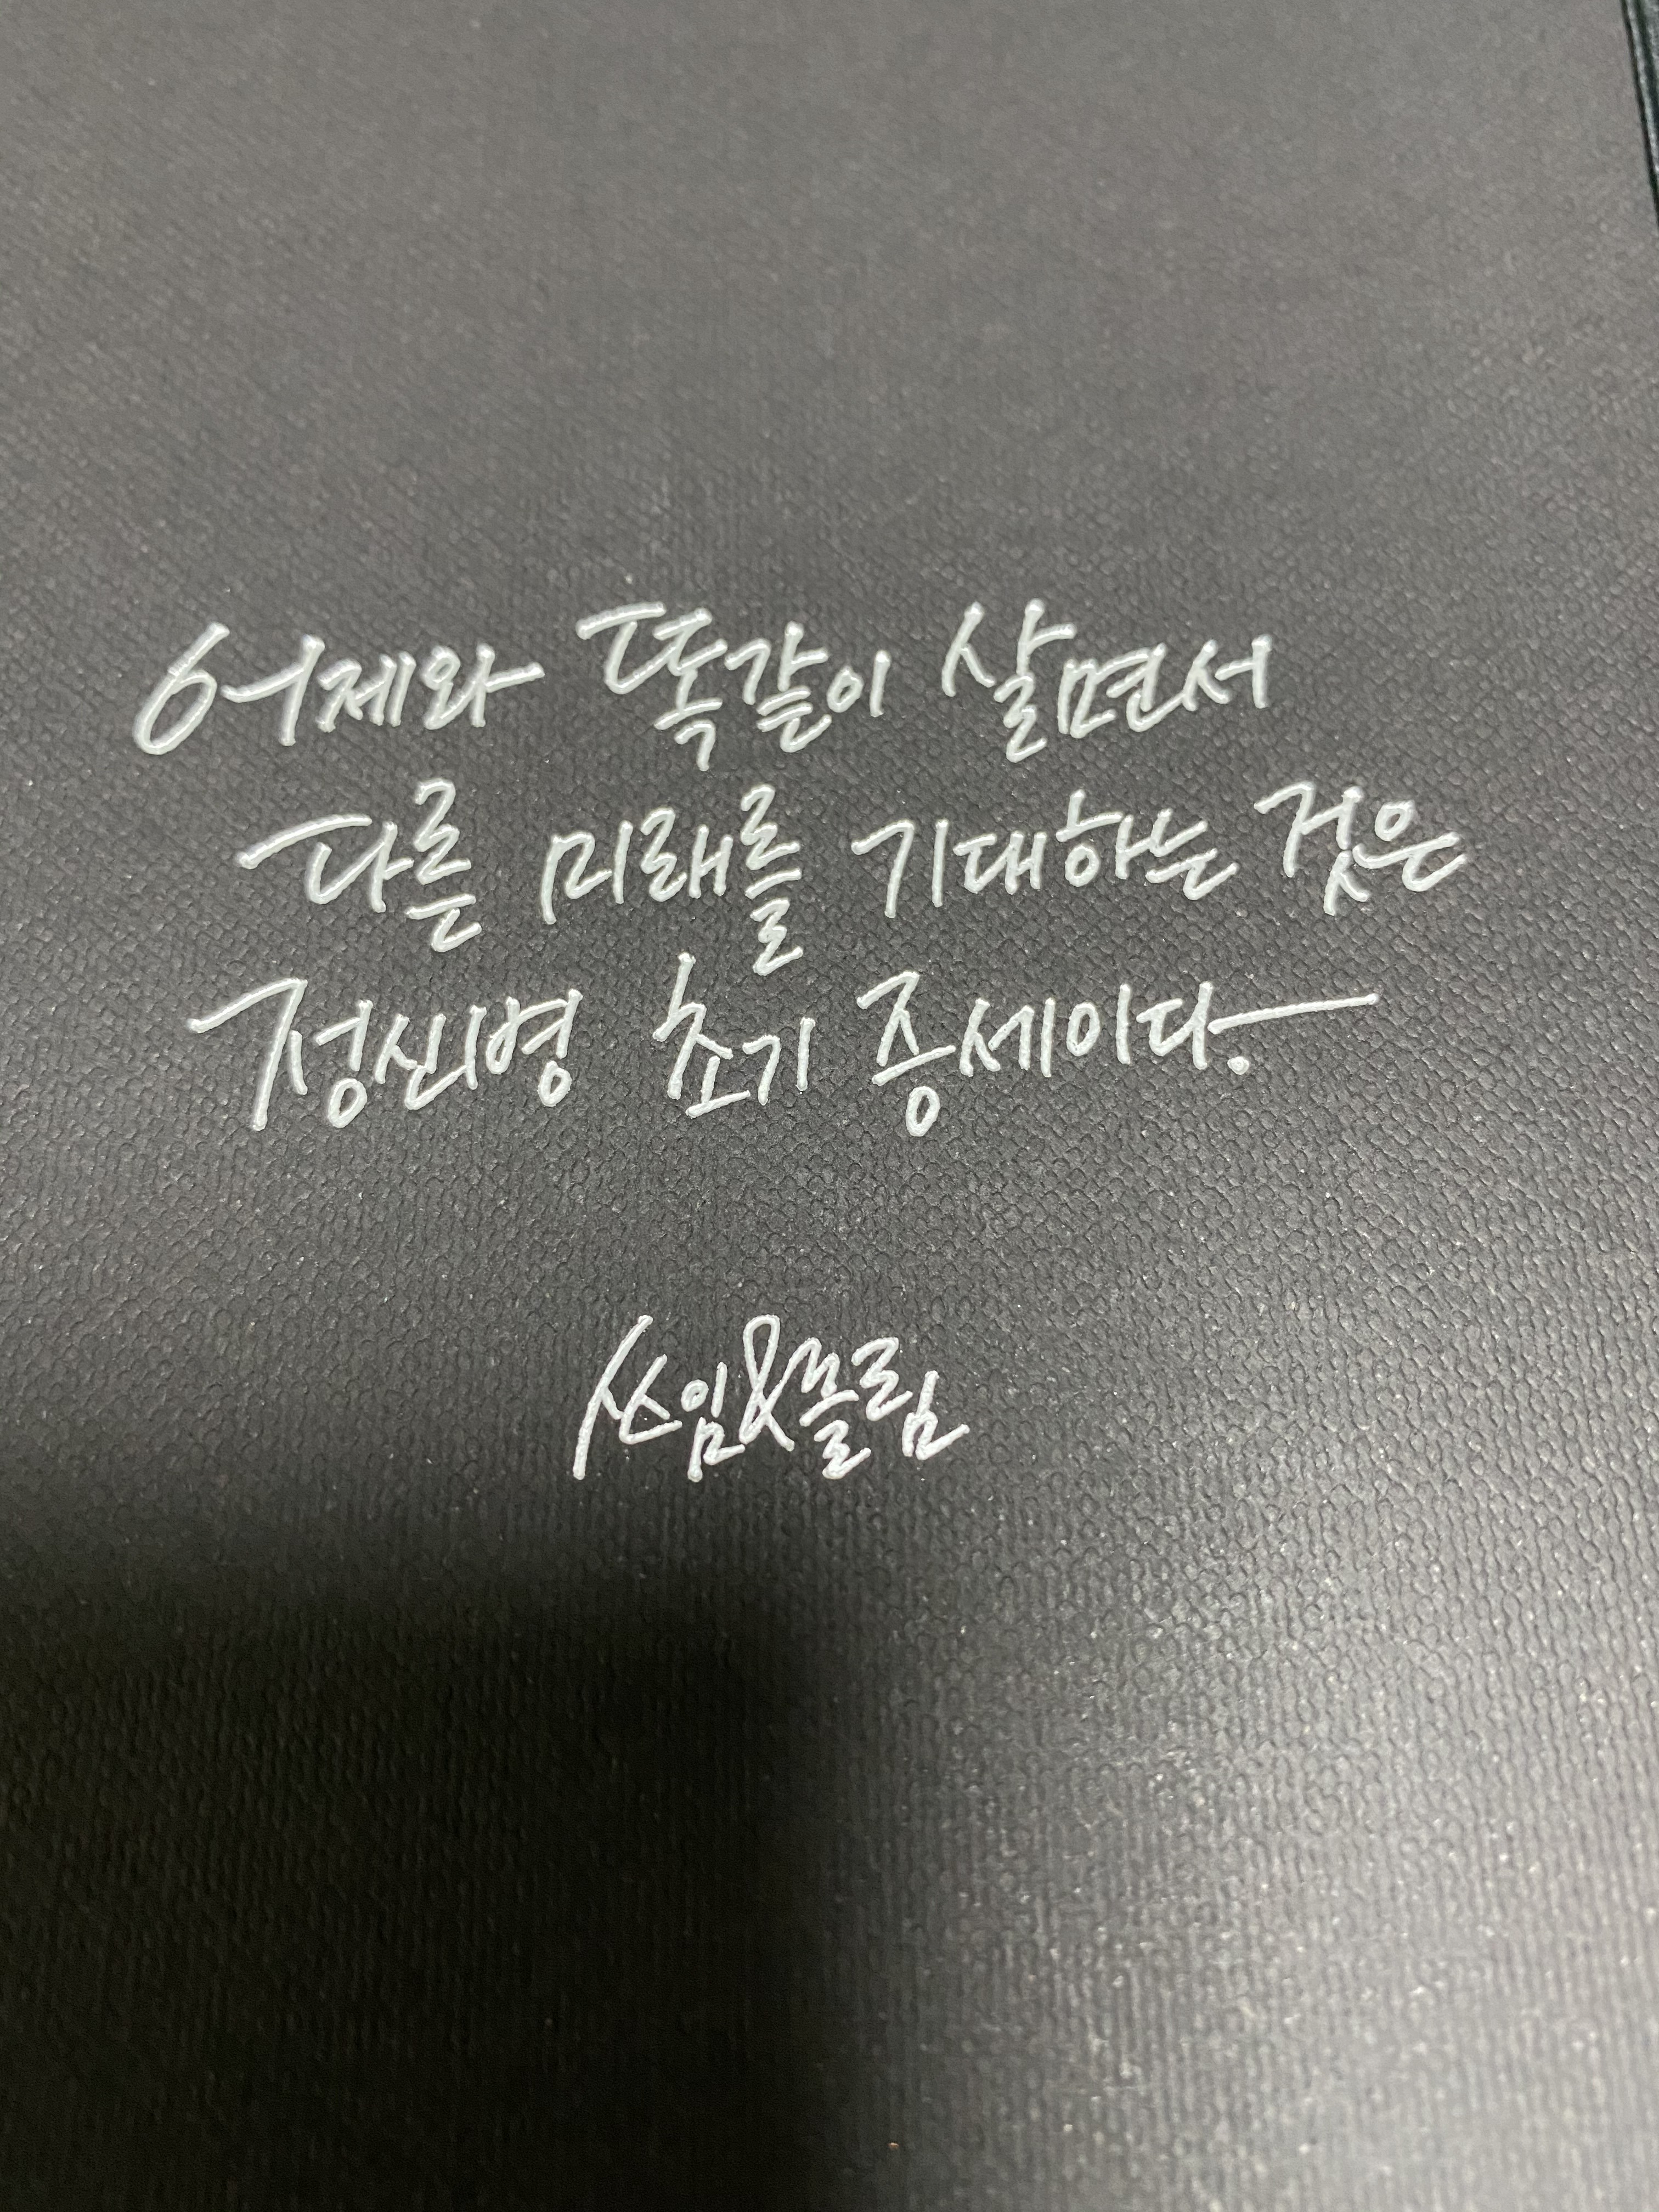 어제와 똑같이 살면서
다른 미래를 기대하는 것은
정신병 초기 증세이다.
쓰임&끌림